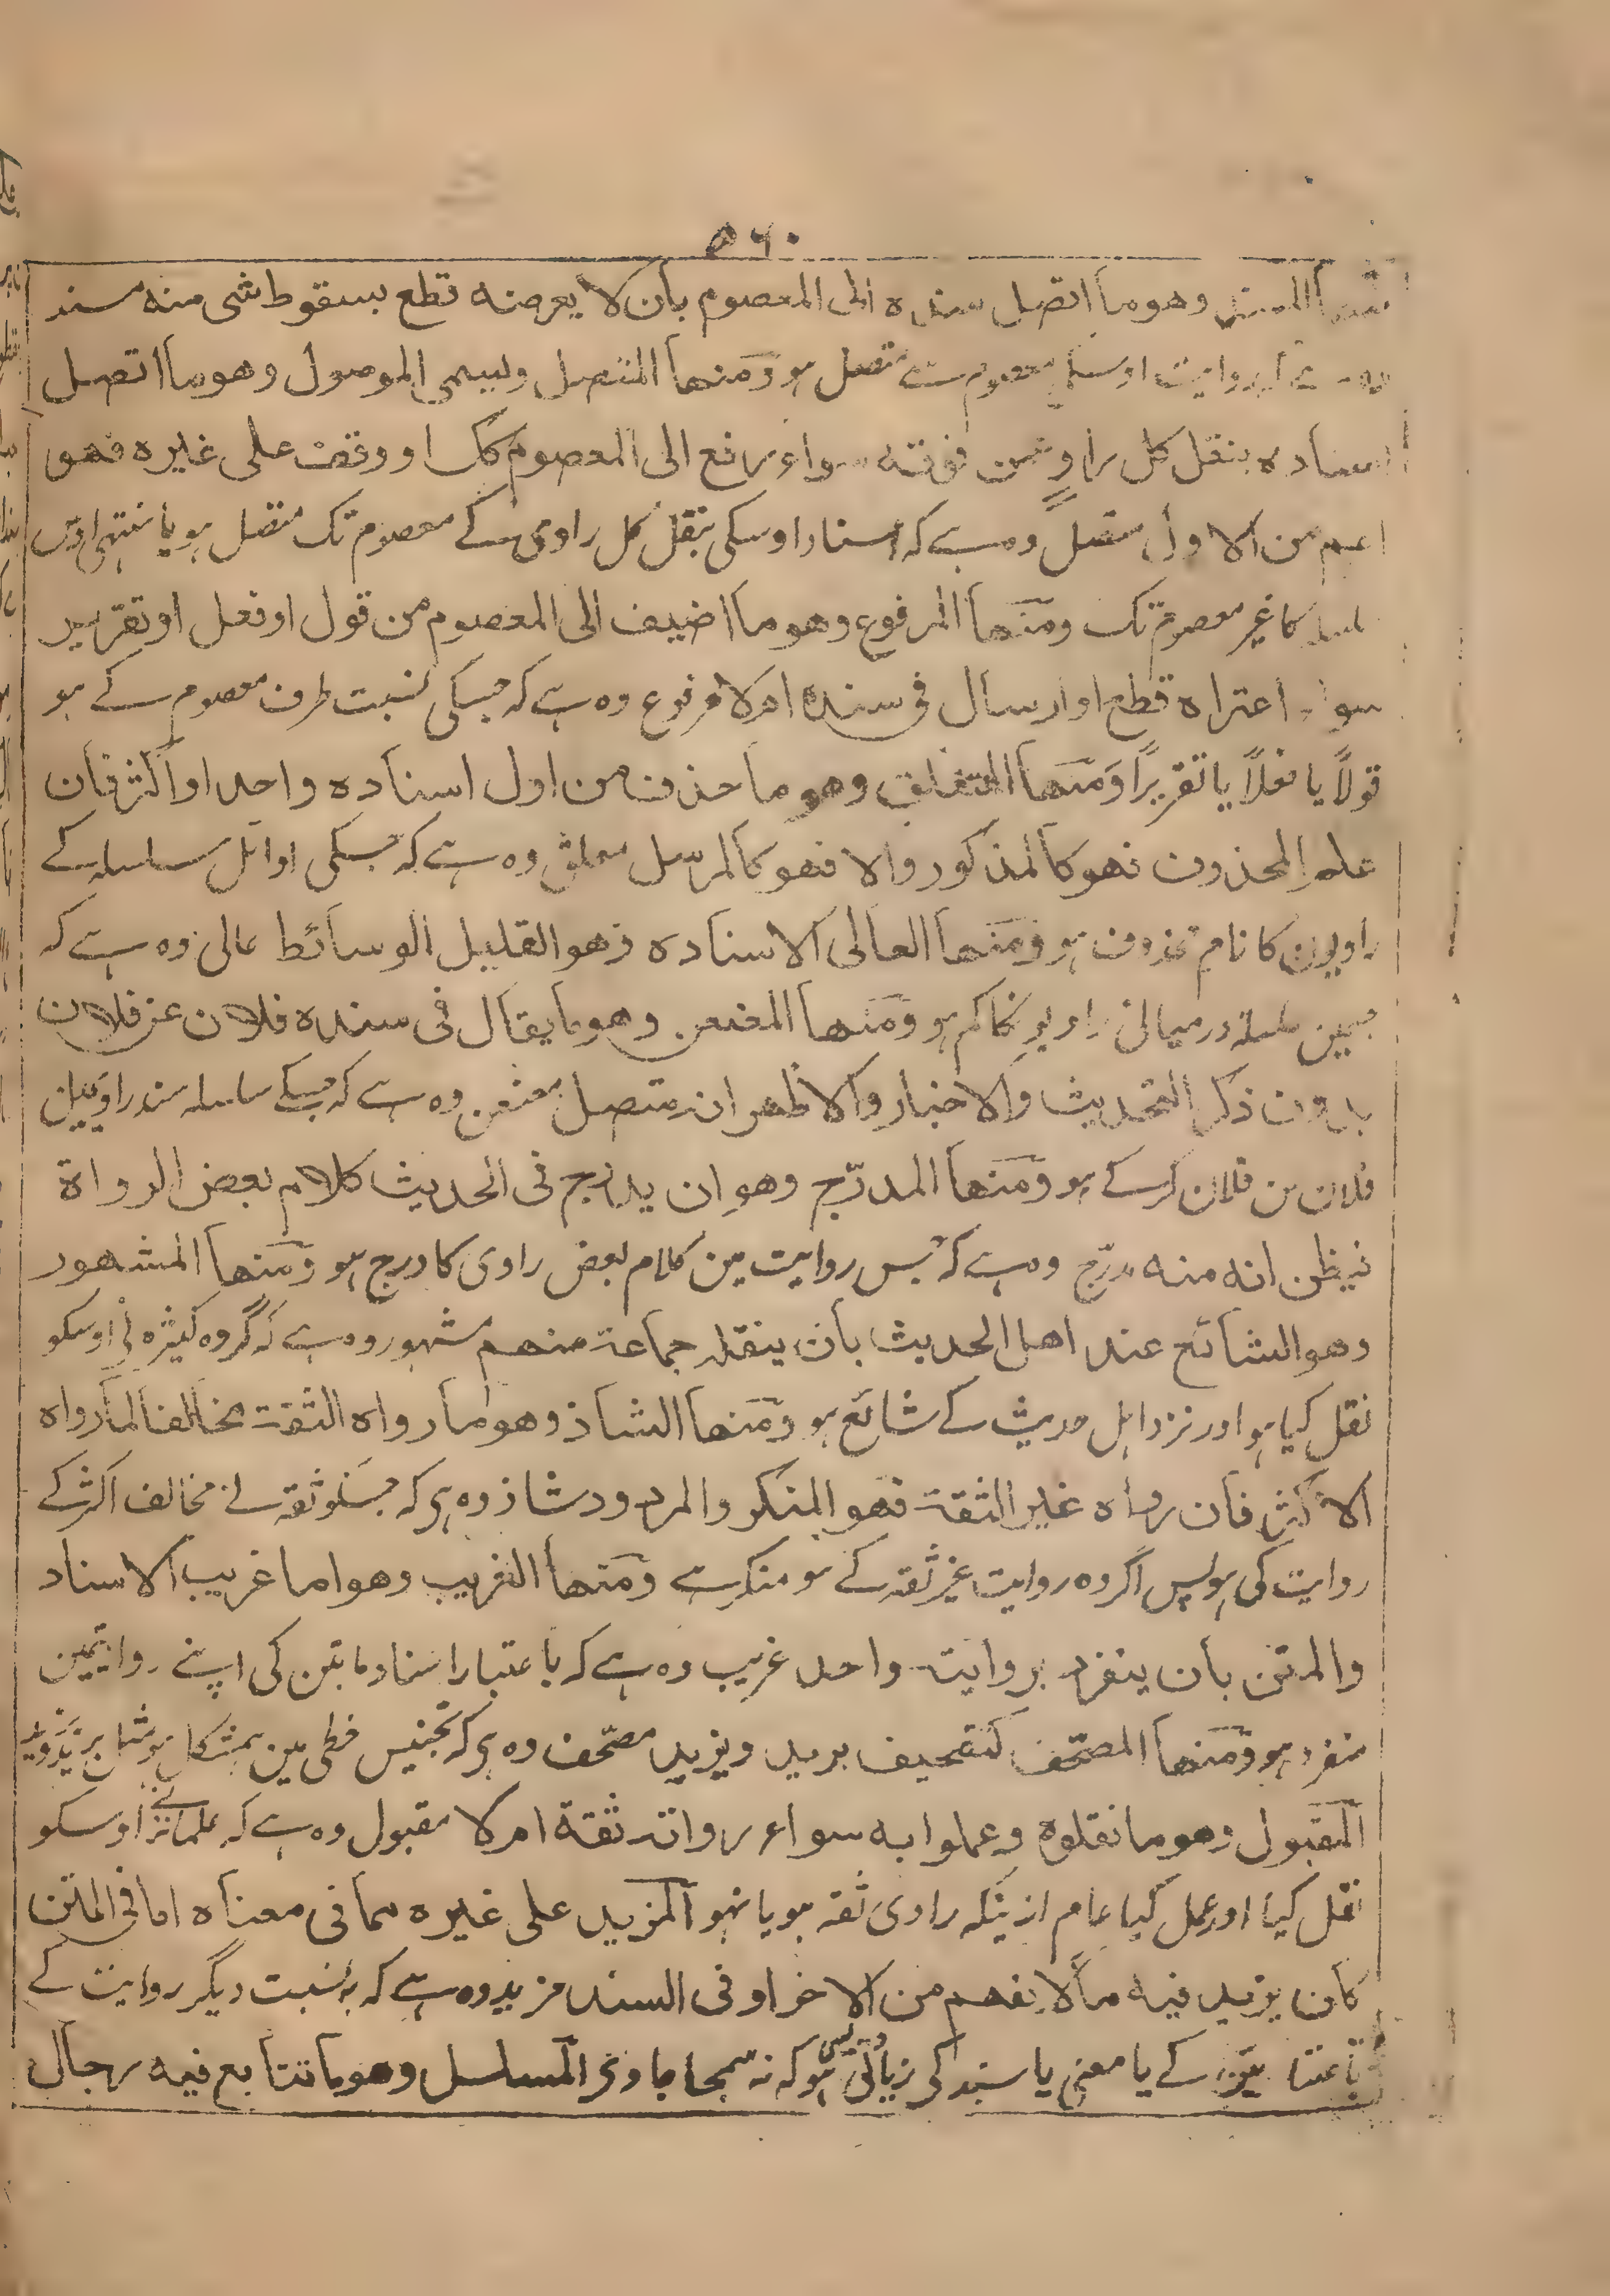 ۵۶۰
المسند وهو ما اتصل سنده الى المعصوم بأن لا يعرضه قطع بسقوط شى منه مسند
روایت اوسکی معصوم سے متصل ہو ومنها المتصل ويسمى الموصول وهو ما اتصل
اسناده بنقل كل راوٍ عمن فوقه سواء رفع الى المعصوم كك او وقف على غيره فهو
اعم من الاول متصل وہ ہے کہ اسناد اوسکی بنقل کل راوی کے معصوم تک متصل ہو یا منتہی ہو
سلسلہ کا غیر معصوم تک ومنها المرفوع وهو ما اضيف الى المعصوم من قول او فعل او تقرير
سواء اعتراه قطع او ارسال فى سنده ام لا مرفوع وہ ہے کہ جسکی نسبت طرف معصوم کے ہو
قولًا یا فعلًا یا تقریرًا ومنها المعلق وهو ما حذف من اول اسناده واحد او اكثر فان
علم المحذوف فهو كالمذكور والا فهو كالمرسل معلق وہ ہے کہ جسکی اوائل سلسلہ کے
راویون کا نام محذوف ہو ومنها العالى الاسناده وهو القليل الوسائط عالی وہ ہے کہ
جسمین سلسلہ درمیانی راویونکا کم ہو ومنها المعنعن وهو ما يقال فى سنده فلان عن فلان
بدون ذكر التحديث والاخبار والاظهر انه متصل معنعن وہ ہے کہ جسکے سلسلہ سند راویین
فلان من فلان کرکے ہو ومنها المدرّج وهو ان يدرج فى الحديث كلام بعض الرواة
فيظن انه منه مدرّج وہ ہے کہ جس روایت مین کلام بعض راوی کا درج ہو ومنها المشهور
وهو الشائع عند اهل الحديث بأن ينقله جماعة منهم مشہور وہ ہے کہ گروہ کثیرہ نے اوسکو
نقل کیا ہو اور نزد اہل حدیث کے شائع ہو ومنها الشاذ وهو ما رواه الثقة مخالفا لما رواه
الاكثر فان رواه غير الثقة فهو المنكر والمردود شاذ وہ ہی کہ جسکو ثقہ نے مخالف اکثر کے
روایت کی ہو پس اگر وہ روایت غیر ثقہ کے ہو منکر ہے ومنها الغريب وهو اما غريب الاسناد
والمتن بان ينفرد برواية واحد غریب وہ ہے کہ باعتبار اسناد و متن کی اپنے روایتمین
منفرد ہو ومنها المصحّف كتصحيف بريد ويزيد مصحّف وہ ہی کہ تجنیس خطی مین ہمشکل ہو مثل برید ویزید
المقبول وهو ما نقلوه وعملوا به سواء رواته ثقة ام لا مقبول وہ ہے کہ علما نے اوسکو
نقل کیا اور عمل کیا عام ازینکہ راوی ثقہ ہو یا نہو المزيد على غيره مما فى معناه اما فى المتن
كان يزيد فيه ما لا يفهم من الاخر او فى السند مزید وہ ہے کہ بہ نسبت دیگر روایت کے
متن کے یا معنی یا سند کی زیادتی ایسی ہو کہ نہ سمجھا جاوی المسلسل وهو ما تتابع فيه رجال